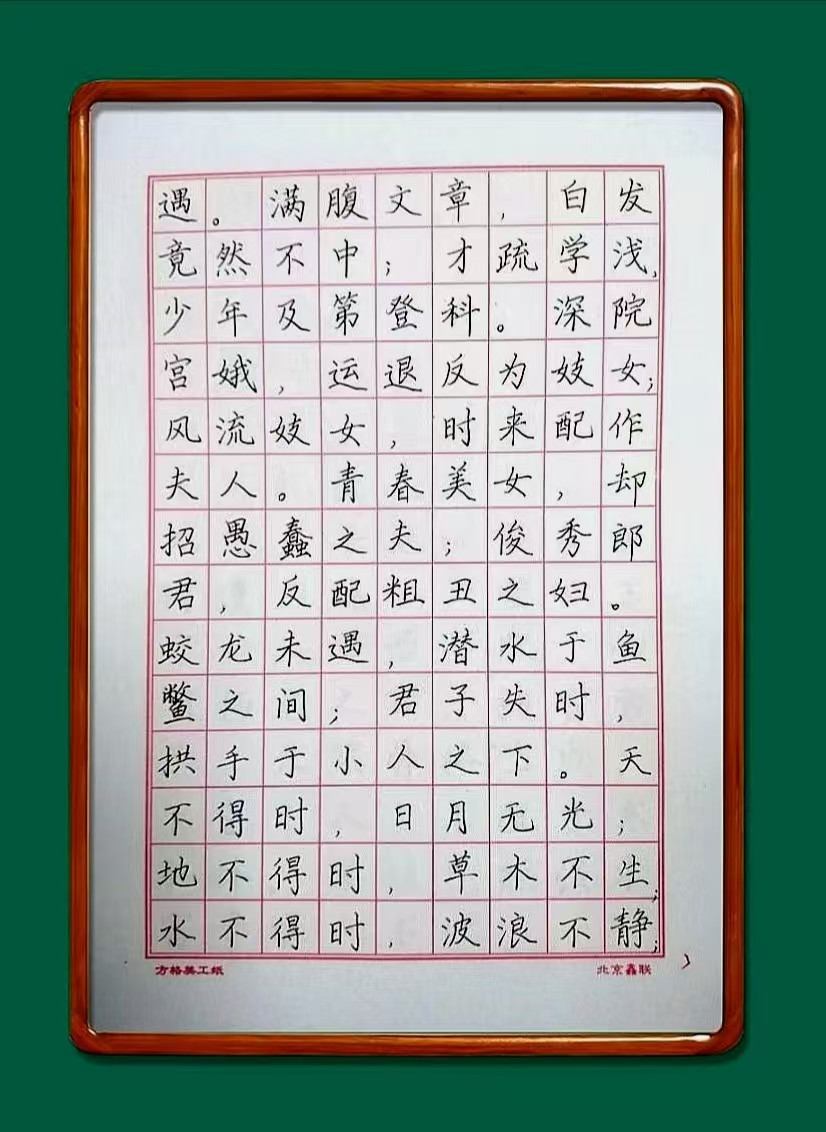 遇。满腹文章，白发
竟然不中；才疏学浅，
少年及第登科。深院
宫娥，运退反为妓女；
风流妓女，时来配作
夫人。青春美女，却
招愚蠢之夫；俊秀郎
君，反配粗丑之妇。
蛟龙未遇，潜水于鱼
鳖之间；君子失时，
拱手于小人之下。天
不得时，日月无光；
地不得时，草木不生；
水不得时，波浪不静；
方格美工纸 北京鑫联